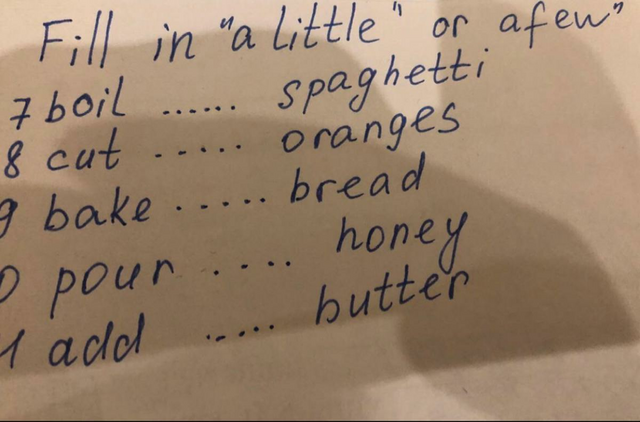 Fill in "a little" or a few"
7 boil ...... spaghetti
8 cut ...... oranges
9 bake ...... bread
0 pour ..... honey
1 add ..... butter